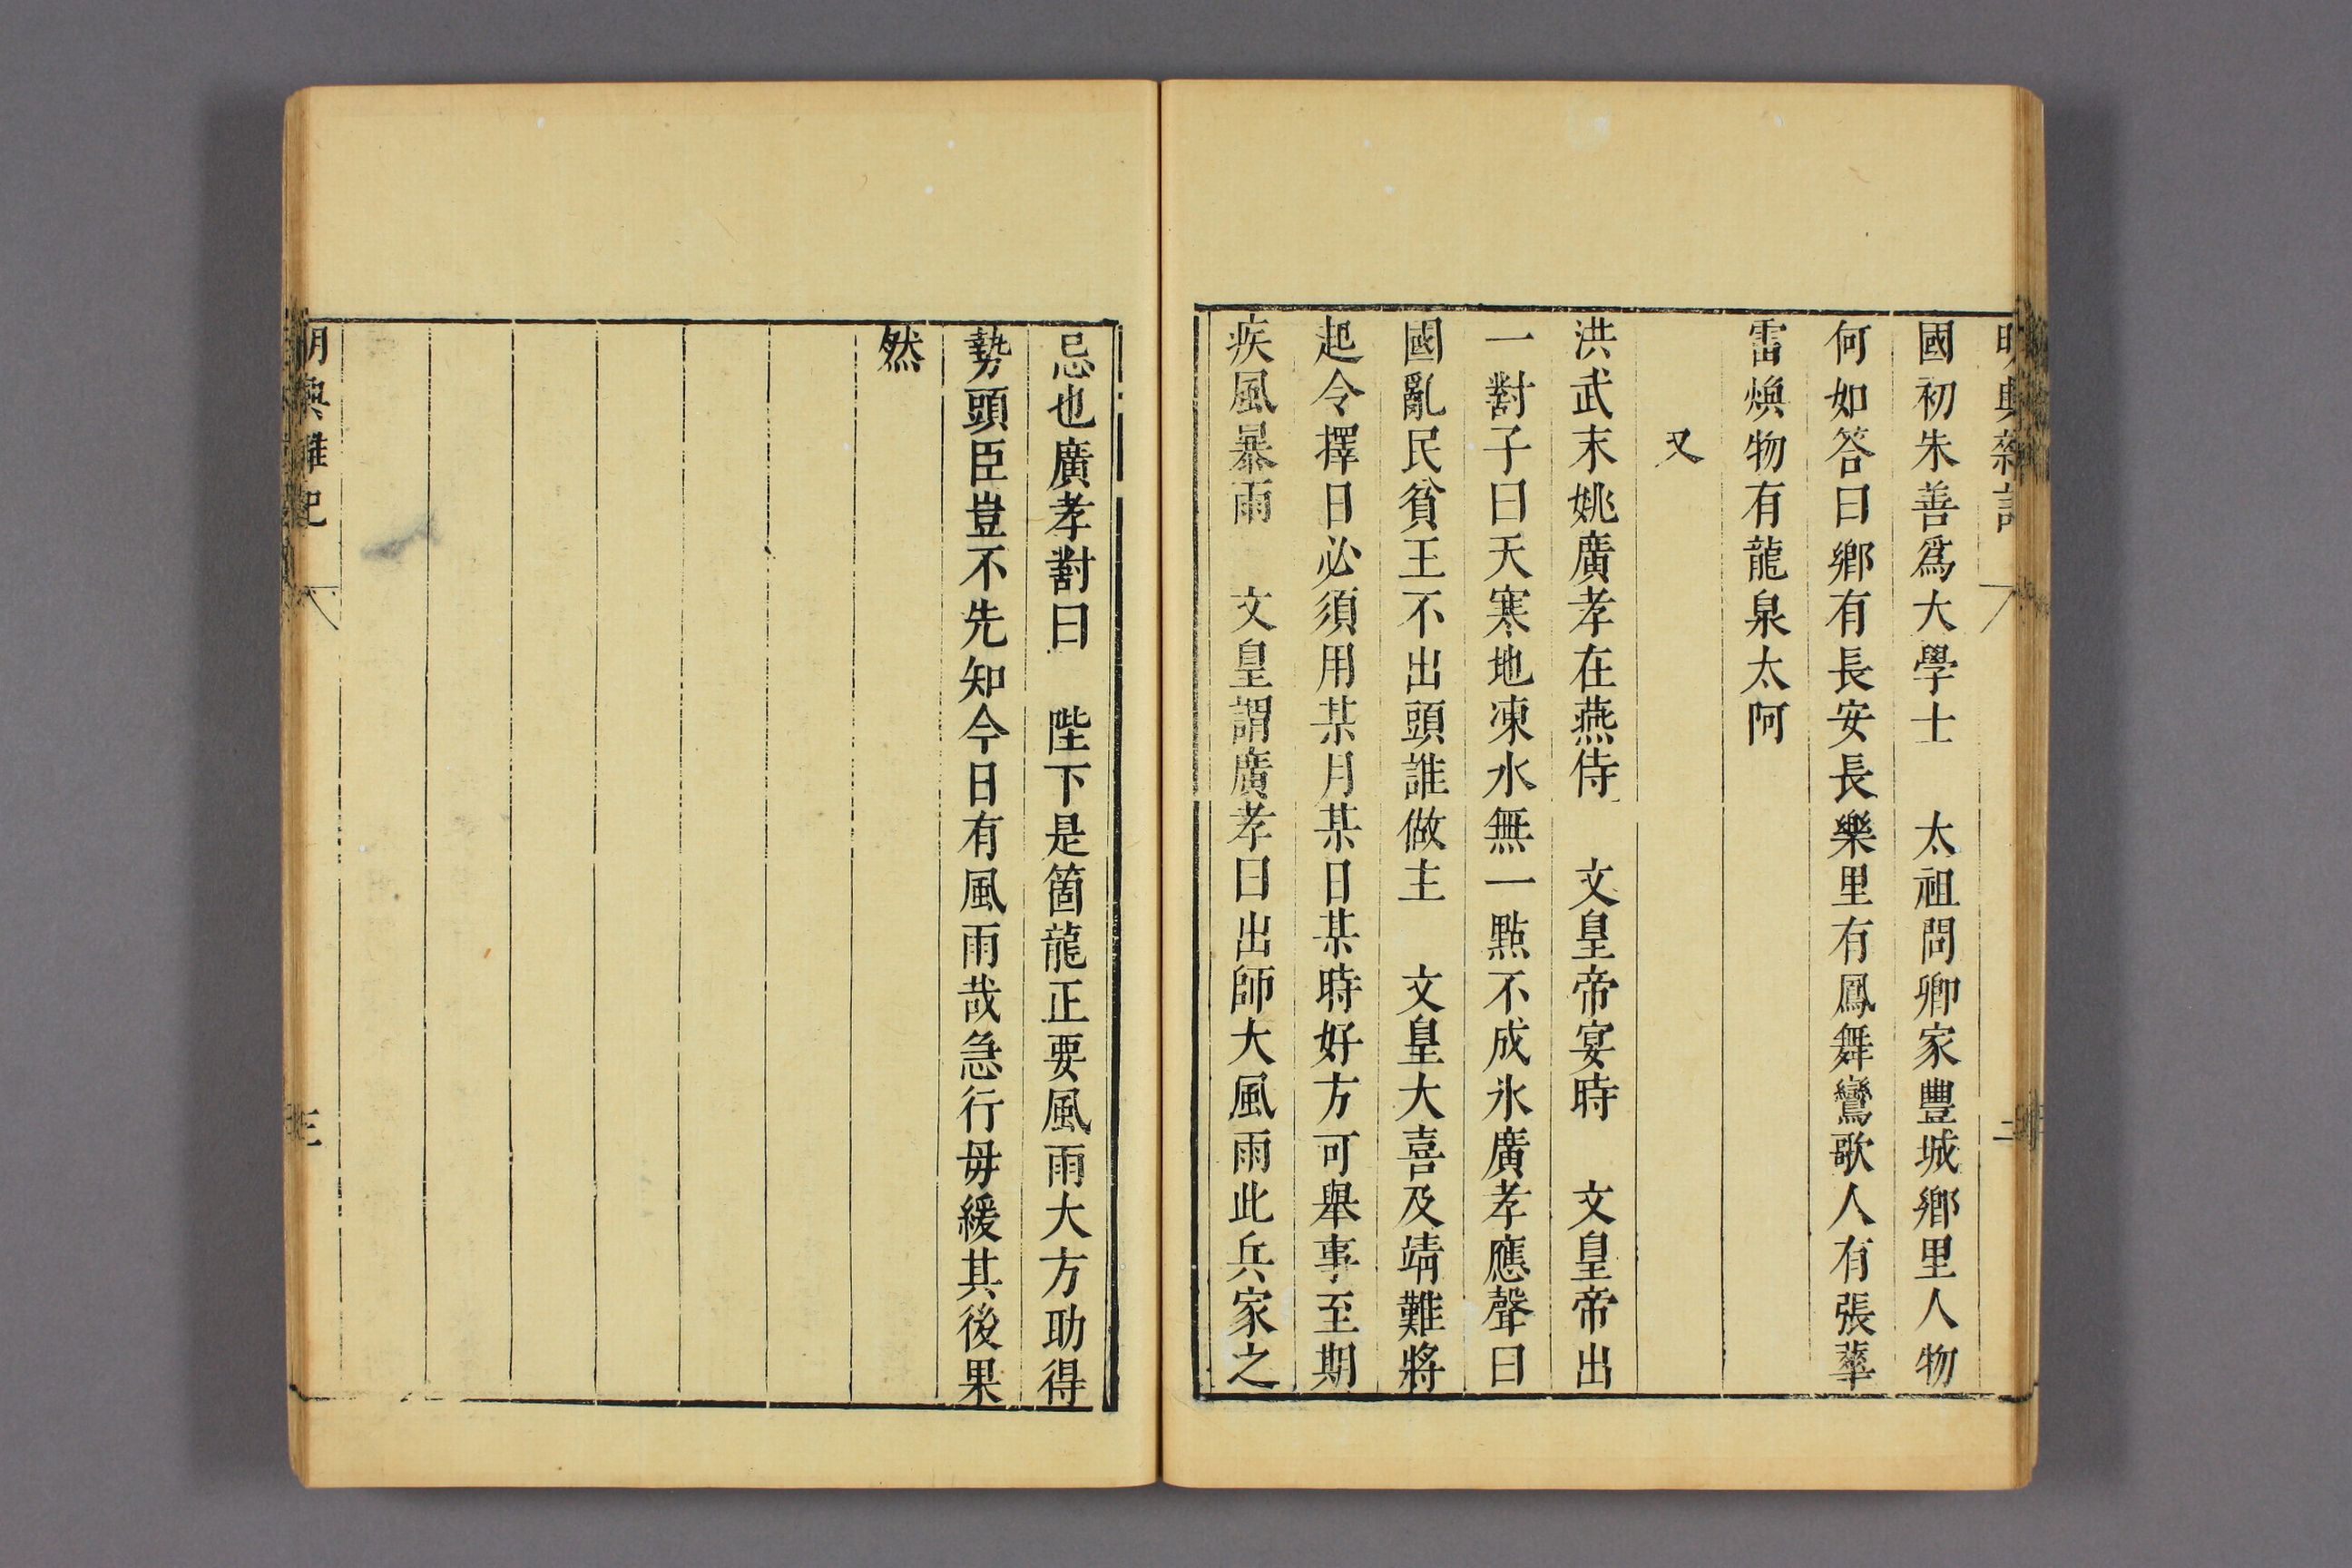 明興雜記
二
國初朱善爲大學士　太祖問卿家豐城鄉里人物
何如答曰鄉有長安長樂里有鳳舞鸞歌人有張華
雷煥物有龍泉太阿
又
洪武末姚廣孝在燕侍　文皇帝宴時　文皇帝出
一對子曰天寒地凍水無一點不成氷廣孝應聲曰
國亂民貧王不出頭誰做主　文皇大喜及靖難將
起令擇日必須用某月某日某時好方可舉事至期
疾風暴雨　文皇謂廣孝曰出師大風雨此兵家之
忌也廣孝對曰　陛下是箇龍正要風雨大方助得
勢頭臣豈不先知今日有風雨哉急行毋緩其後果
然
明興雜記
三